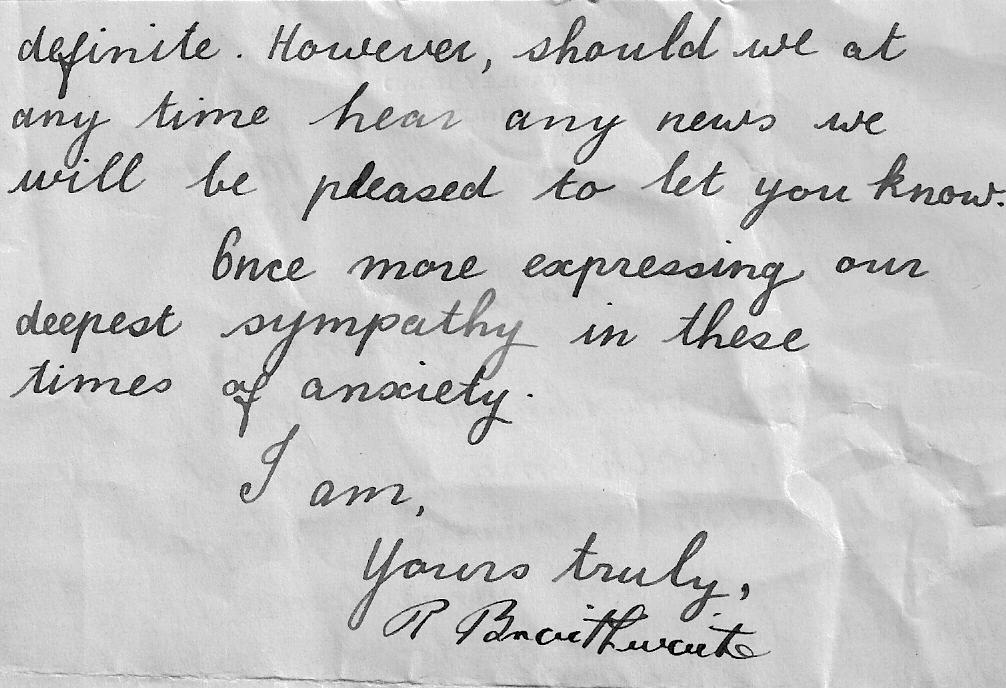 definite. However, should we at
any time hear any news we
will be pleased to let you know.
Once more expressing our
deepest sympathy in these
times of anxiety.
I am,
Yours truly,
R Braithwaite